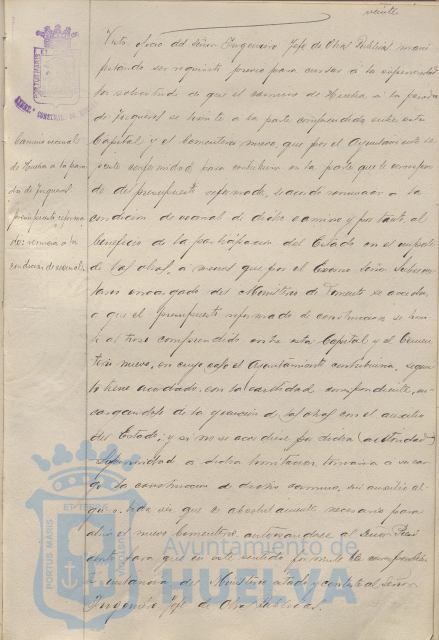 veinte
Visto oficio del Señor Ingeniero Jefe de Obras Públicas mani
festando ser requisito previo para cursar á la superioridad
la solicitud de que el camino de Huelva á la parada
de Jerguerol se limite á la parte comprendida entre esta
Capital y el Cementerio nuevo, que por el Ayuntamiento se
preste conformidad para contribuir en la parte que le correspon
de del presupuesto reformado, ó acuerde renunciar á la
condicion de vecinal de dicho camino y por tanto, al
beneficio de la participacion del Estado en el importe
de las obras, á menos que por el Excmo Señor Subsecre
tario encargado del Ministerio de Fomento se acceda
á que el presupuesto reformado de construccion se limi
te al trozo comprendido entre esta Capital y el Cemen
terio nuevo, en cuyo caso el Ayuntamiento contribuiria, segun
lo tiene acordado, con la cantidad correspondiente, en
cargandose de la ejecucion de las obras con el auxilio
del Estado; y si no se accediese por dicha autoridad
á dicha limitacion
la construccion de dicho camino, sin auxilio al
guno, toda vez que es absolutamente necesario para
abrir el nuevo Cementerio autorizandose al Señor Presi
dente para que en este sentido formule la correspondien
te instancia al Ministerio citado y conteste al Señor
Ingeniero Jefe de Obras Públicas.
Camino vecinal
de Huelva á la para
da de Jerguerol
presupuesto reforma
do: renuncia á la
condicion de vecinal.
PORTUS MARIS
Ayuntamiento de
HUELVA
PORTUS MARIS
ET TERRÆ
CUSTODIA